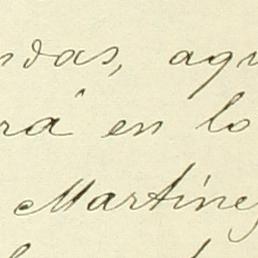 ndas, aqu
rá en lo
Martíne